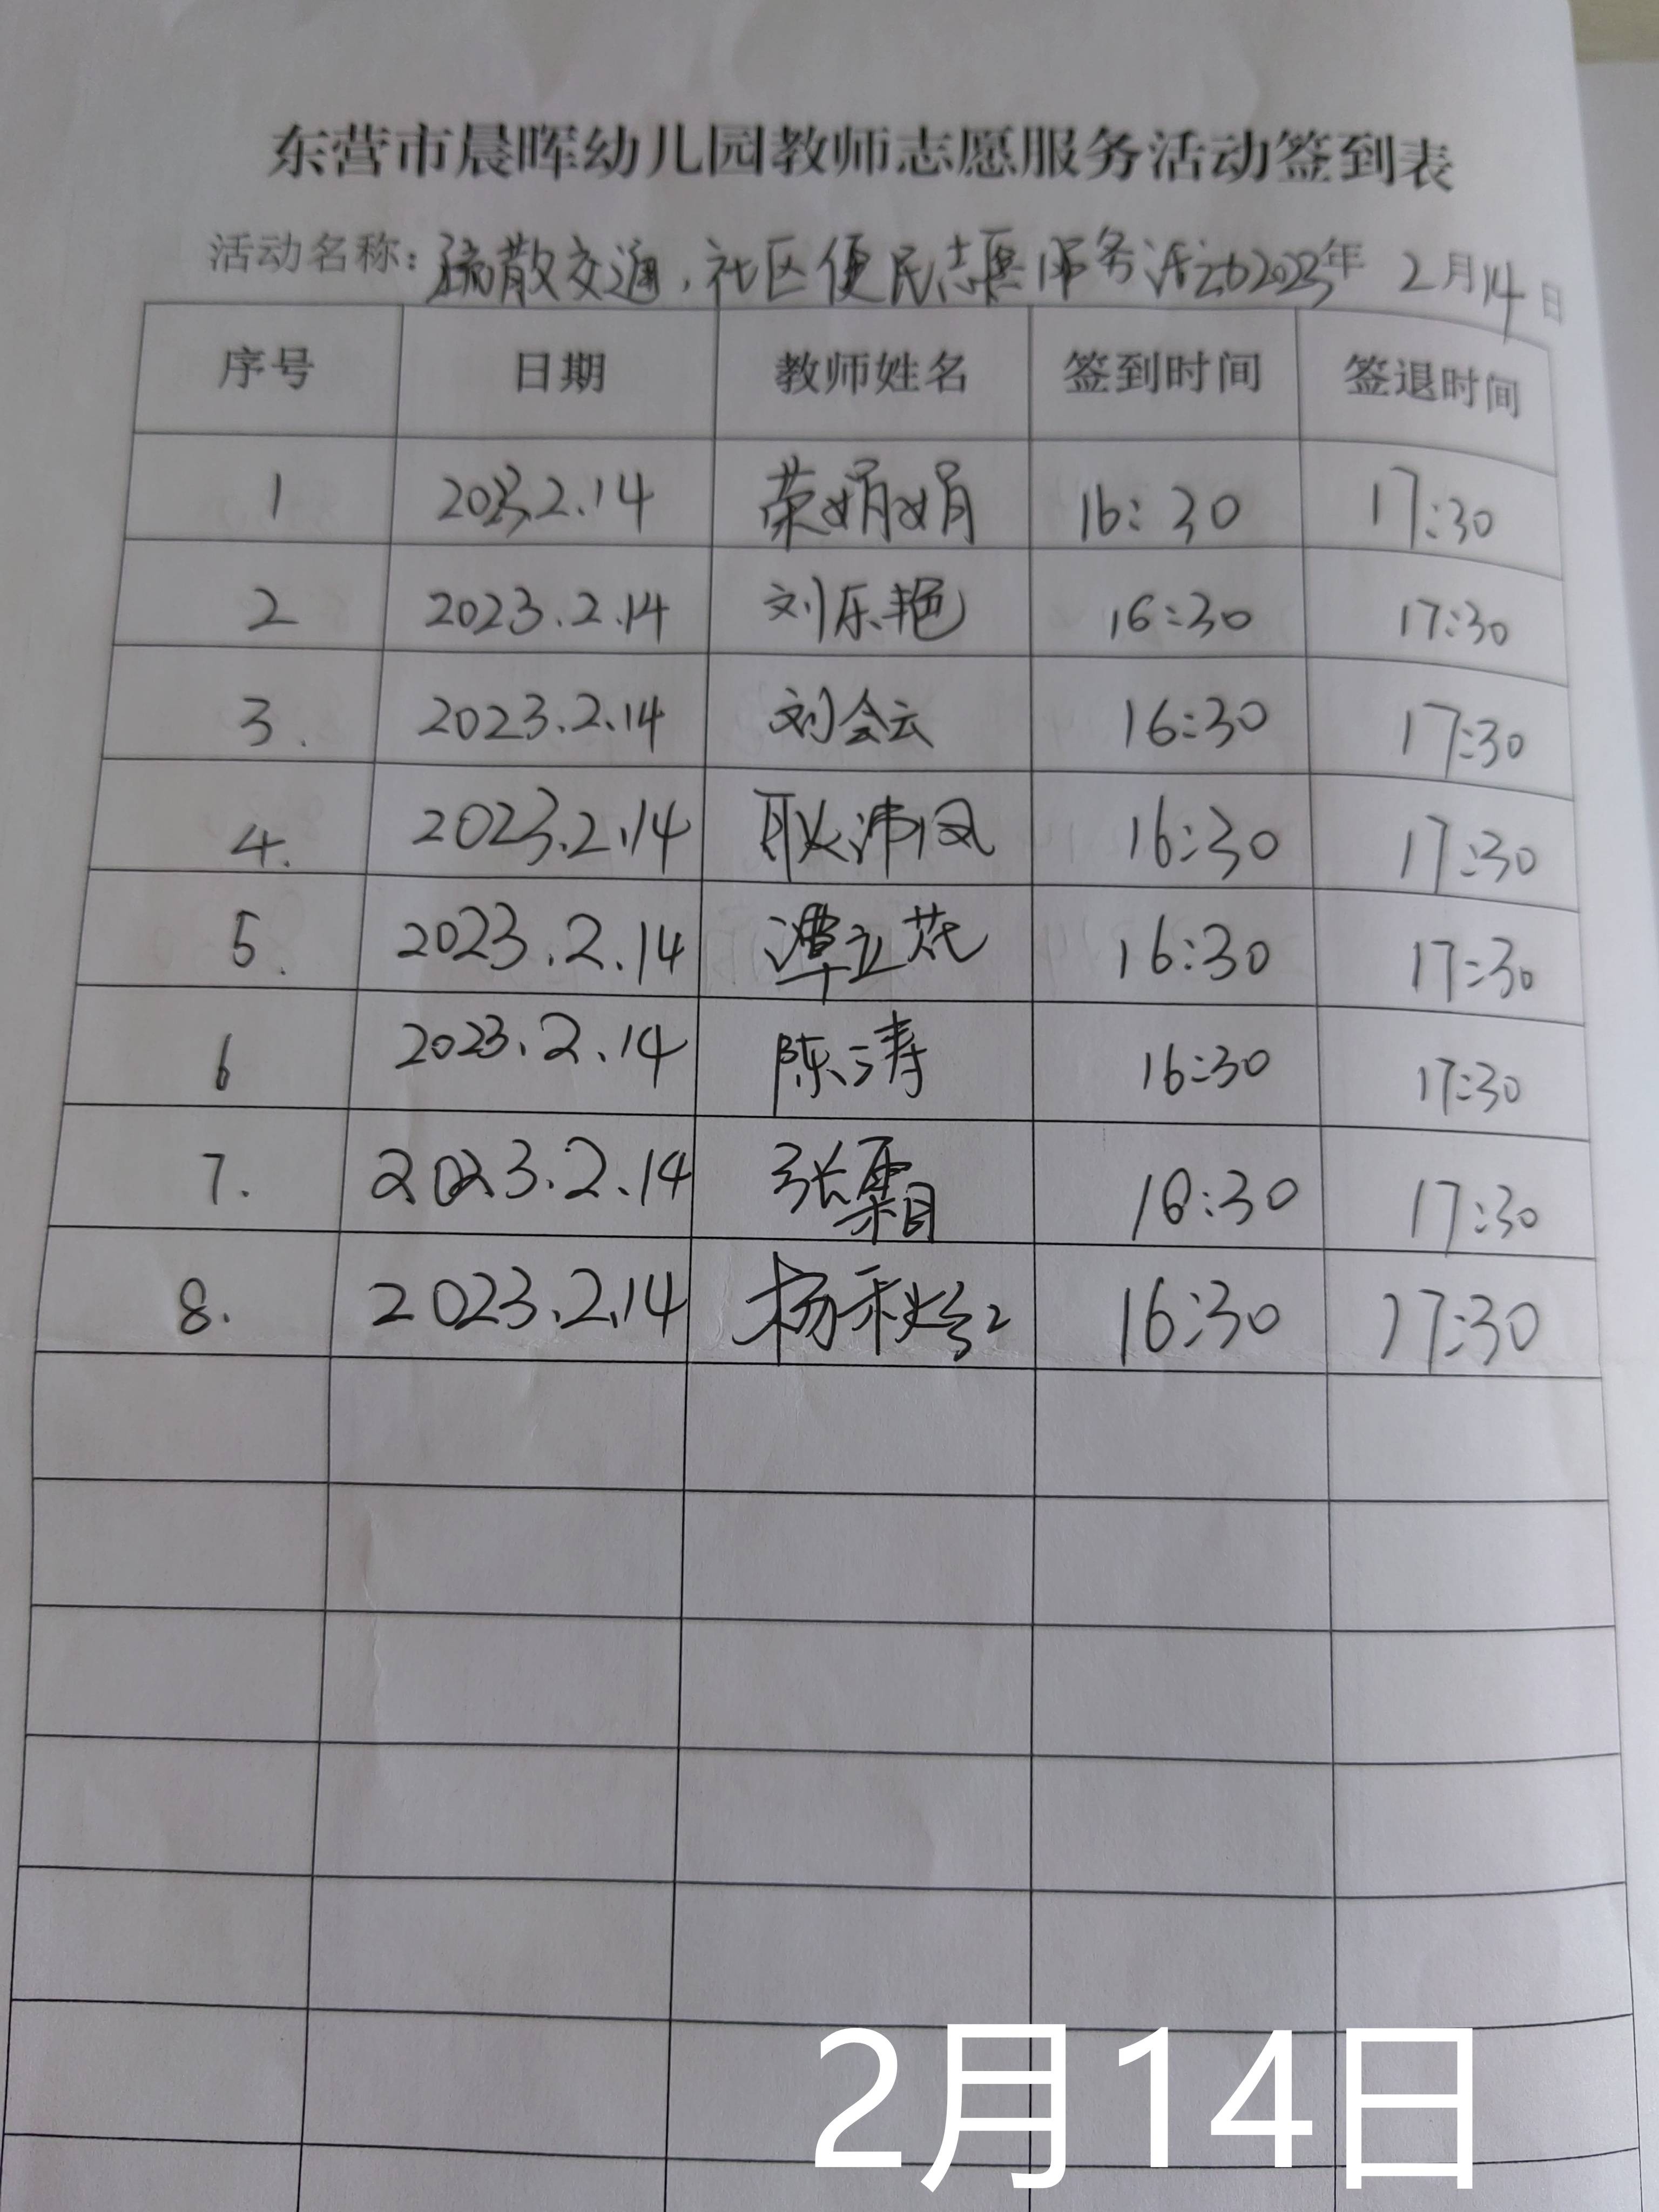 东营市晨晖幼儿园教师志愿服务活动签到表
活动名称：疏散交通，社区便民志愿服务活动2023年 2月14日
序号 日期 教师姓名 签到时间 签退时间
1 2023.2.14 荣娟娟 16:30 17:30
2 2023.2.14 刘乐艳 16:30 17:30
3. 2023.2.14 刘会云 16:30 17:30
4. 2023.2.14 16:30 17:30
5. 2023.2.14 16:30 17:30
6 2023.2.14 陈涛 16:30 17:30
7. 2023.2.14 张霜 16:30 17:30
8. 2023.2.14 杨秋红 16:30 17:30
2月14日